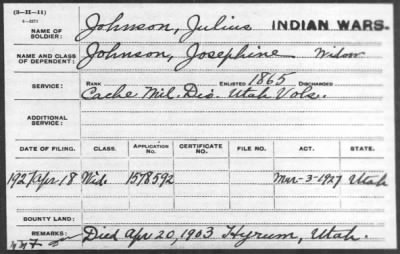 (3-II-11)
6-2271
NAME OF SOLDIER: Johnson, Julius INDIAN WARS.
NAME AND CLASS OF DEPENDENT: Johnson, Josephine Widow
SERVICE: RANK ENLISTED 1865 DISCHARGED
Cache Mil. Dis. Utah Vols.
ADDITIONAL SERVICE:
DATE OF FILING. CLASS. APPLICATION No. CERTIFICATE No. FILE NO. ACT. STATE.
1927 Apr 18 Wid. 1578592 Mar-3-1927 Utah
BOUNTY LAND:
REMARKS: Died Apr 20, 1903 Hyrum, Utah.